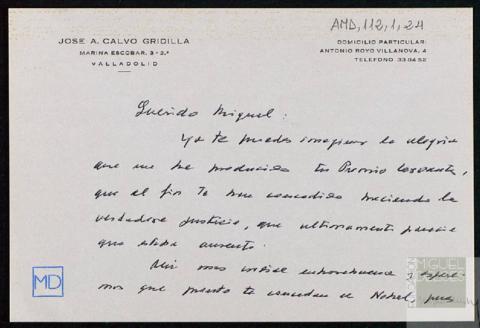 AMD, 112, 1, 24
JOSE A. CALVO GRIDILLA
MARINA ESCOBAR, 3-2.º
VALLADOLID
DOMICILIO PARTICULAR:
ANTONIO ROYO VILLANOVA, 4
TELEFONO 33 04 52
Querido Miguel:
Ya te puedes imaginar la alegria
que me ha producido tu Premio Cervantes,
que al fin te han concedido haciendo la
verdadera justicia, que ultimamente parecia
que estaba ausente.
Mi mas cordial enhorabuena y espere-
mos que pronto te concedan el Nobel, pues
MD
FUNDACIÓN
MIGUEL
DELIBES